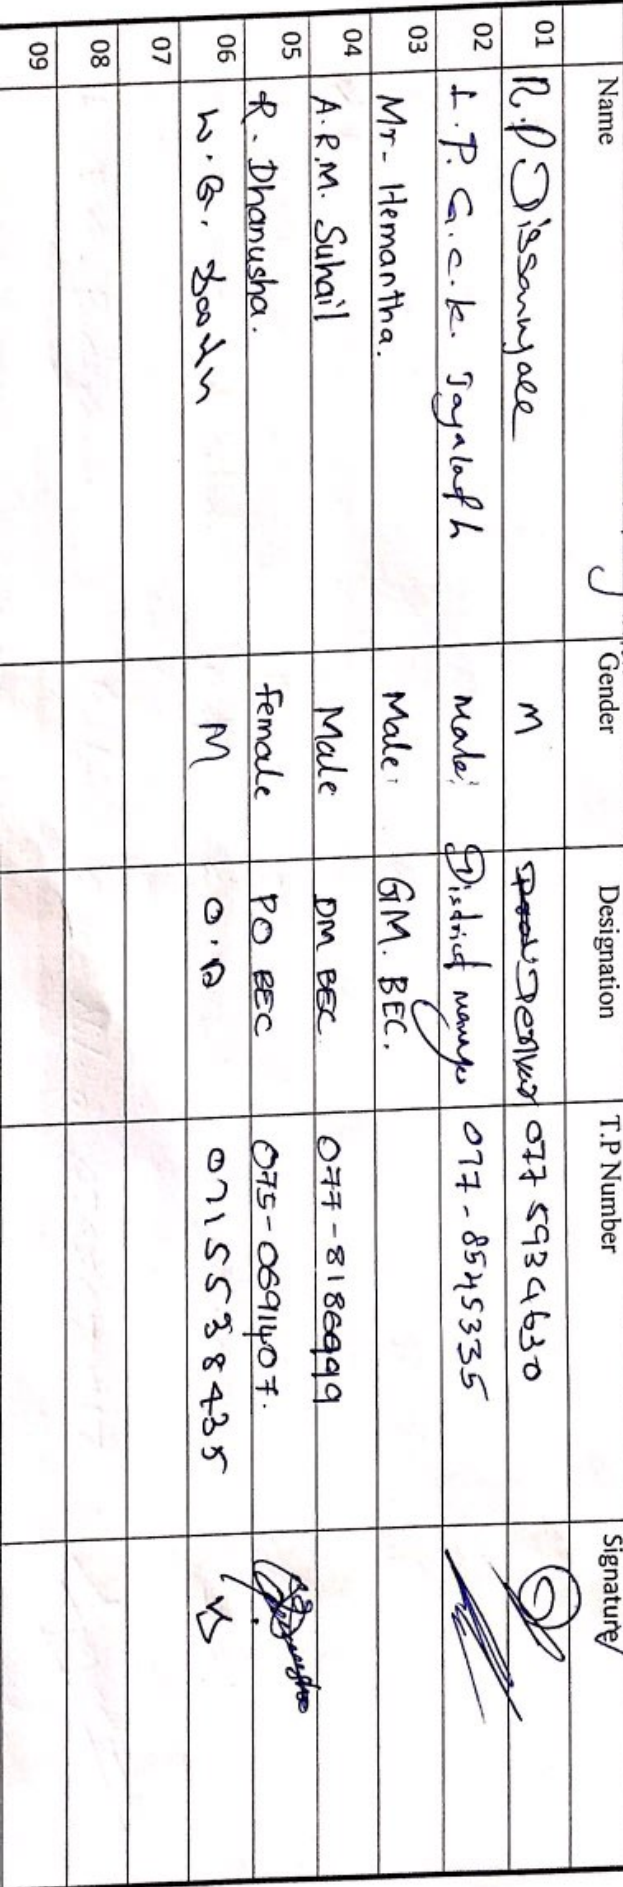 Name Gender Designation T.P Number Signature
01 R.P Dissanyake M 077 5934630
02 L.P.G.C.K. Jayalath Male District manager 077-8545335
03 Mr- Hemantha. Male GM. BEC.
04 A.R.M. Suhail Male DM BEC 077-8186999
05 R. Dhanusha. Female PO BEC 075-0691407.
06 W.G. M O.A 0715538435
07
08
09